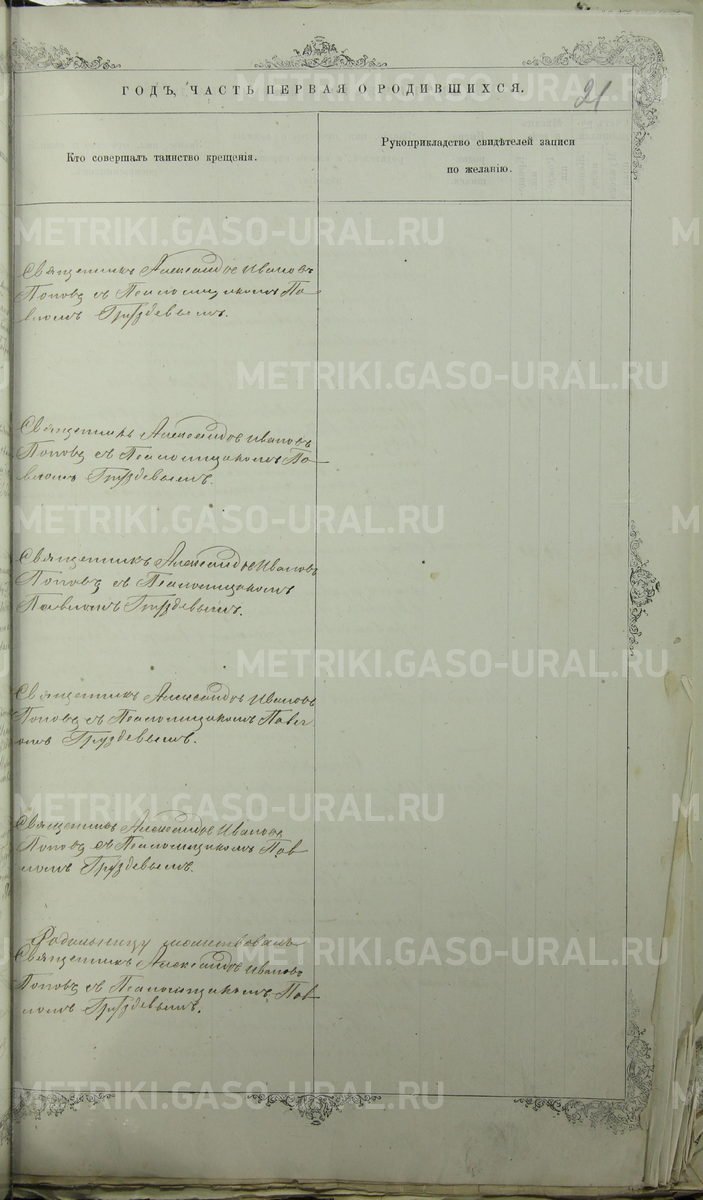 ГОДЪ, ЧАСТЬ ПЕРВАЯ О РОДИВШИХСЯ.
21
Кто совершалъ таинство крещенія.
Рукоприкладство свидѣтелей записи
по желанію.
METRIKI.GASO-URAL.RU
Священникъ Александръ Ивановъ
Поповъ съ Псаломщикомъ Па-
вломъ Груздевымъ.
METRIKI.GASO-URAL.RU
Священникъ Александръ Ивановъ
Поповъ съ Псаломщикомъ Па-
вломъ Груздевымъ.
METRIKI.GASO-URAL.RU
Священникъ Александръ Ивановъ
Поповъ съ Псаломщикомъ
Павломъ Груздевымъ.
METRIKI.GASO-URAL.RU
Священникъ Александръ Ивановъ
Поповъ съ Псаломщикомъ Павл
омъ Груздевымъ.
METRIKI.GASO-URAL.RU
Священникъ Александръ Ивановъ
Поповъ съ Псаломщикомъ Пав
ломъ Груздевымъ.
Родильницу молитвовалъ
METRIKI.GASO-URAL.RU
Священникъ Александръ Ивановъ
Поповъ съ Псаломщикомъ Пав
ломъ Груздевымъ.
METRIKI.GASO-URAL.RU